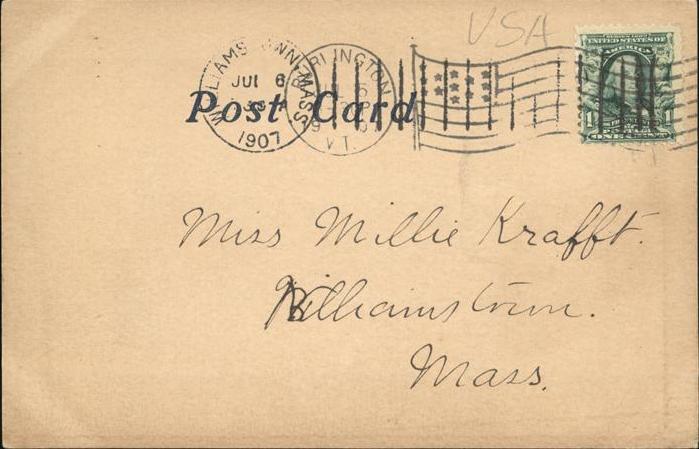 USA
WILLIAMSTOWN, MASS.
JUL 6
1907
BURLINGTON
VT.
UNITED STATES OF
AMERICA
1 1
POSTAGE
ONE CENT
Post Card
Miss Millie Krafft.
Williamstown.
Mass.